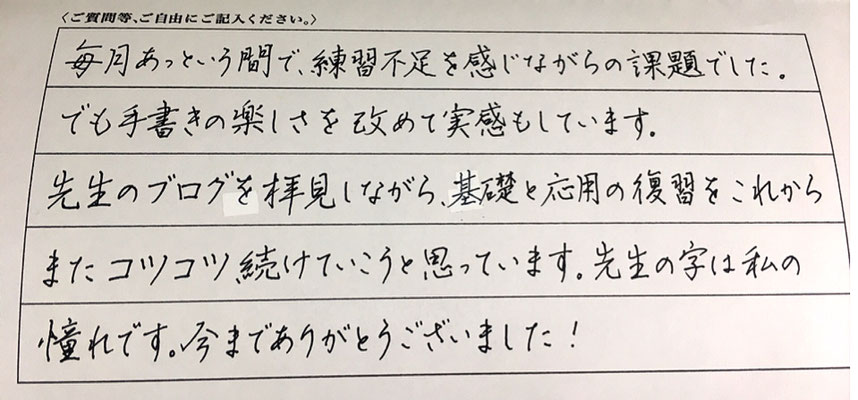 〈ご質問等、ご自由にご記入ください。〉
毎月あっという間で、練習不足を感じながらの課題でした。
でも手書きの楽しさを改めて実感もしています。
先生のブログを拝見しながら、基礎と応用の復習をこれから
またコツコツ続けていこうと思っています。先生の字は私の
憧れです。今までありがとうございました！